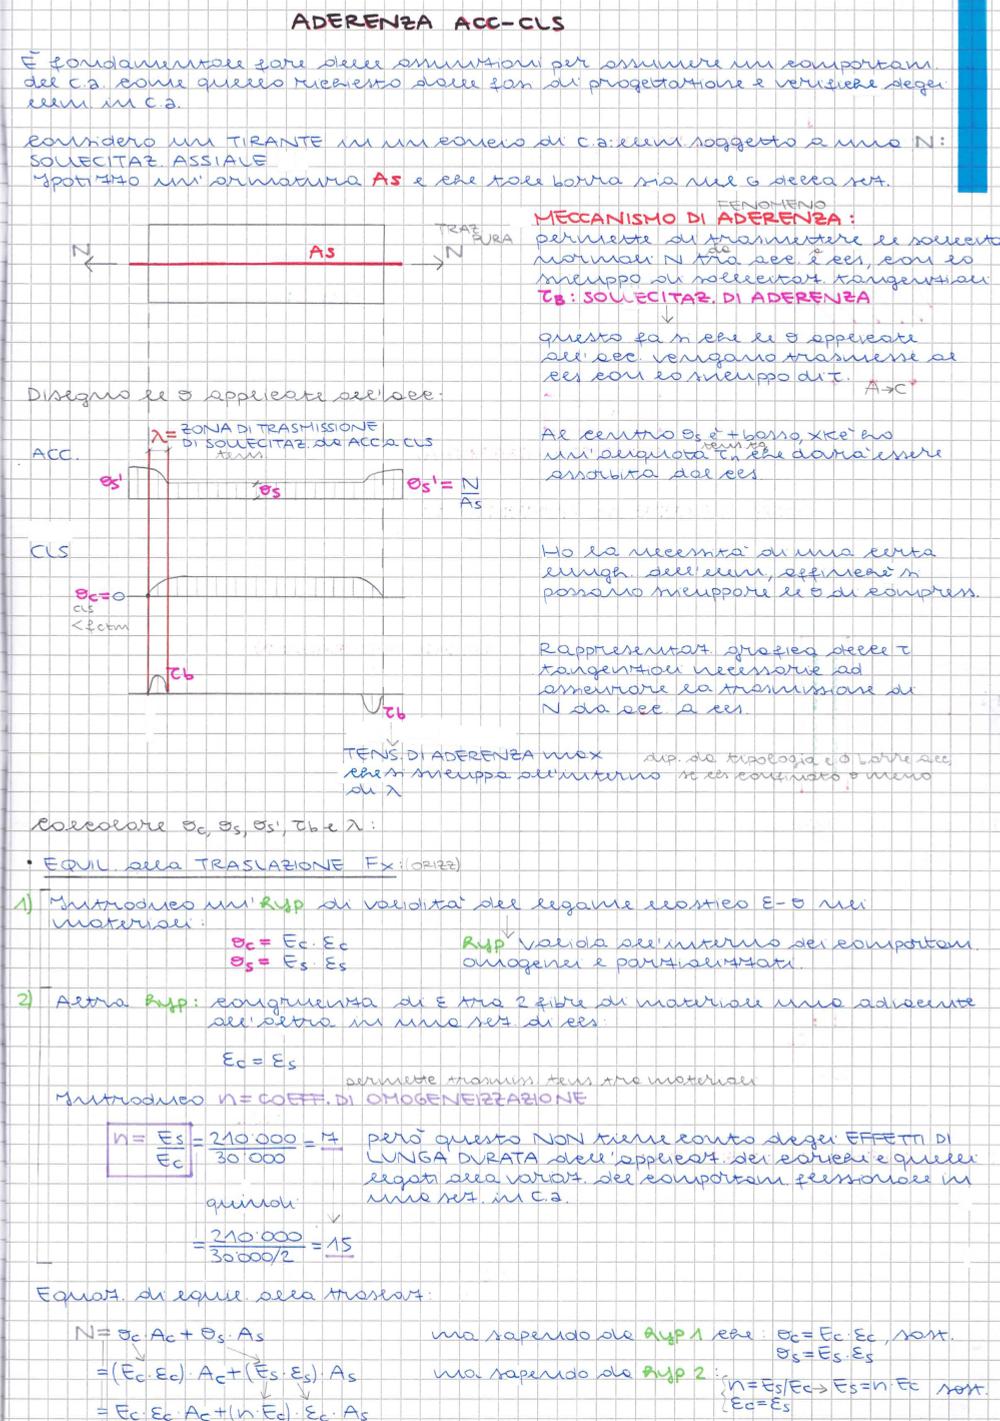 ADERENZA ACC-CLS
È fondamentale fare delle assunzioni per assumere un comportam.
del c.a. come quello richiesto dalle fasi di progettazione e verifiche degli
elem in c.a.
considero un TIRANTE in un concio di c.a: elem soggetto a una N:
SOLLECITAZ. ASSIALE
Ipotizzo un'armatura As e che tale barra sia nel G della sez.
N
As
N
TRAZ PURA
FENOMENO
MECCANISMO DI ADERENZA:
permette di trasmettere le sollecitaz
normali N tra acc. e cls, con lo
sviluppo di sollecitaz. tangenziali
τB: SOLLECITAZ. DI ADERENZA
questo fa sì che le σ applicate
all'acc. vengano trasmesse al
cls con lo sviluppo di τ.
A→C
Disegno le σ applicate all'acc:
λ= ZONA DI TRASMISSIONE
DI SOLLECITAZ. da ACC a CLS
tens
ACC.
σs'
σs
σs' = N/As
Al centro σs è + basso, xkè ho
un'aliquota che dovrà essere
assorbita dal cls
CLS
σc=0
CLS
<fctm
Ho la necessità di una certa
lungh. dell'elem, affinchè si
possano sviluppare le σ di compress.
τb
τb
Rappresentaz. grafica delle τ
tangenziali necessarie ad
assicurare la trasmissione di
N da acc. a cls.
TENS. DI ADERENZA max
che si sviluppa all'interno
di λ
dip. da tipologia e ø barre acc,
se cls confinato o meno
calcolare σc, σs, σs', τb e λ:
• EQUIL. alla TRASLAZIONE Fx: (ORIZZ)
1) Introduco un'Hyp di validità del legame elastico ε-σ nei
materiali:
σc = Ec · εc
σs = Es · εs
Hyp valida all'interno dei comportam.
omogenei e parzializzati.
2) Altra Hyp: congruenza di ε tra 2 fibre di materiale una adiacente
all'altra in una sez. di cls:
εc = εs
permette trasmiss. tens tra materiali
Introduco n = COEFF. DI OMOGENEIZZAZIONE
n = Es/Ec = 210'000/30'000 = 7
però questo NON tiene conto degli EFFETTI DI
LUNGA DURATA dell'applicaz. dei carichi e quelli
legati alla variaz. del comportam. flessionale in
una sez. in c.a.
quindi
= 210'000/30'000/2 = 15
Equaz. di equil. alla traslaz:
N = σc · Ac + σs · As
ma sapendo da Hyp 1 che: σc = Ec · εc, sost.
σs = Es · εs
= (Ec · εc) · Ac + (Es · εs) · As
ma sapendo da Hyp 2:
n = Es/Ec → Es = n · Ec sost.
εc = εs
= Ec · εc · Ac + (n · Ec) · εc · As